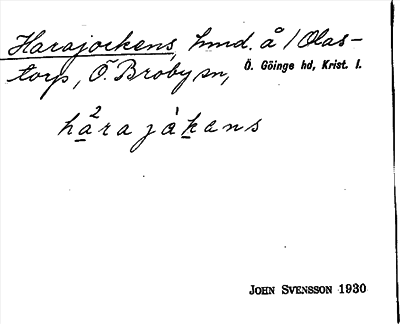 Harajockens, hmd. å / Olas-
torp, Ö. Broby sn, Ö. Göinge hd, Krist. l.
hä²rajåkans
JOHN SVENSSON 1930